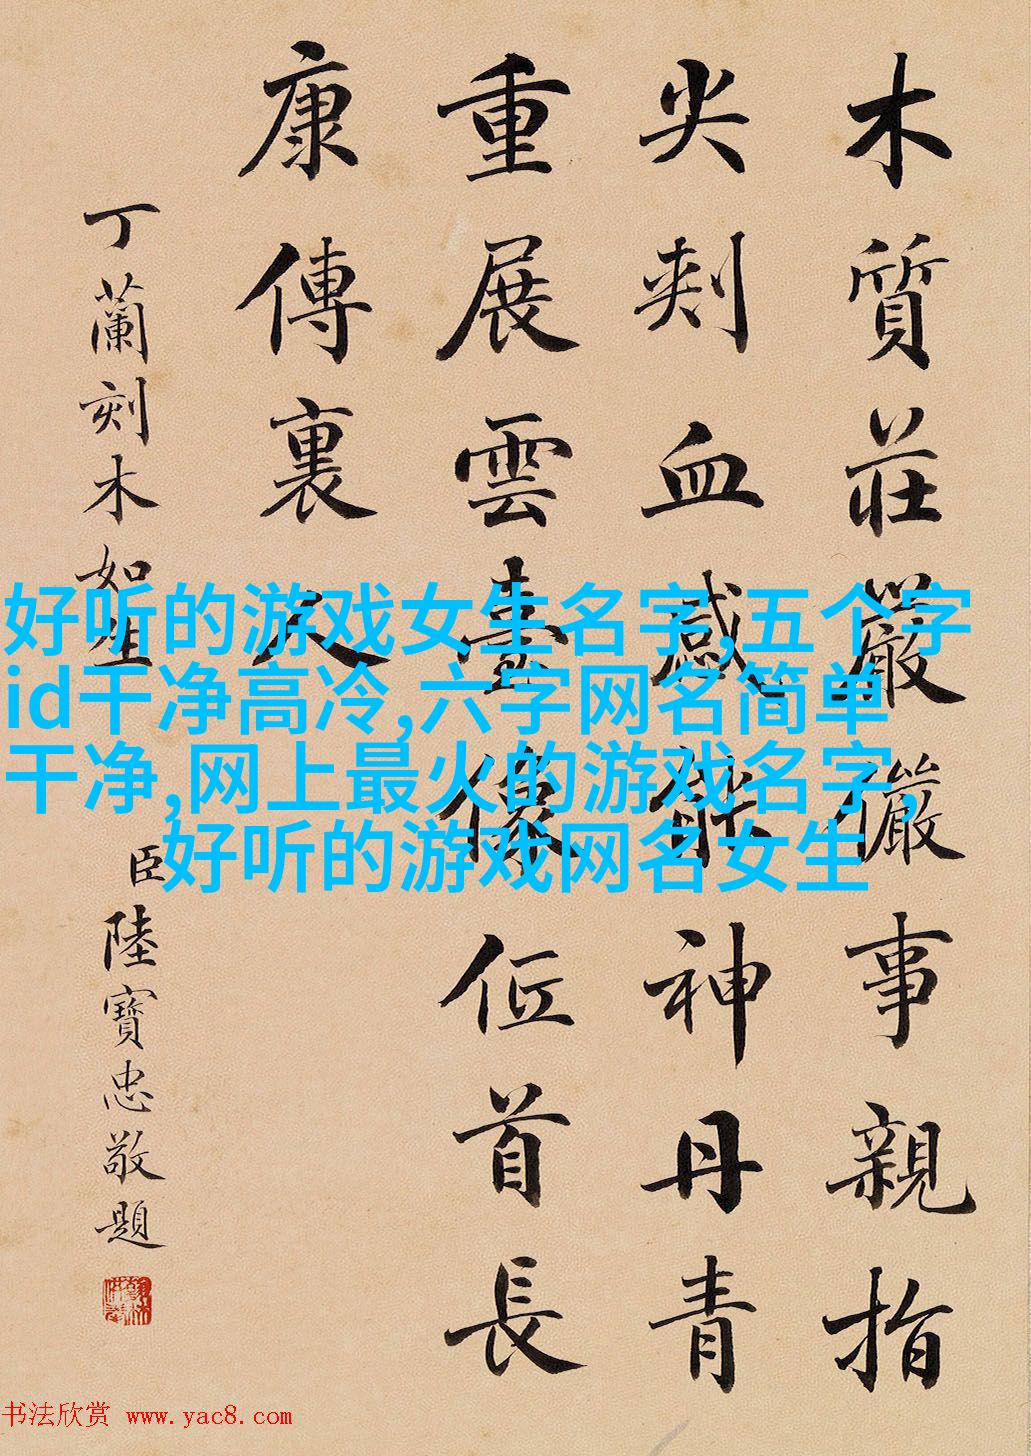 木質莊嚴儼事親指
尖刾血感能神丹青
重展雲臺像位首長
康傳裏人
丁蘭刻木如生
臣陸寶忠敬題
好听的游戏女生名字,五个字
id干净高冷,六字网名简单
干净,网上最火的游戏名字,
好听的游戏网名女生
书法欣赏 www.yac8.com